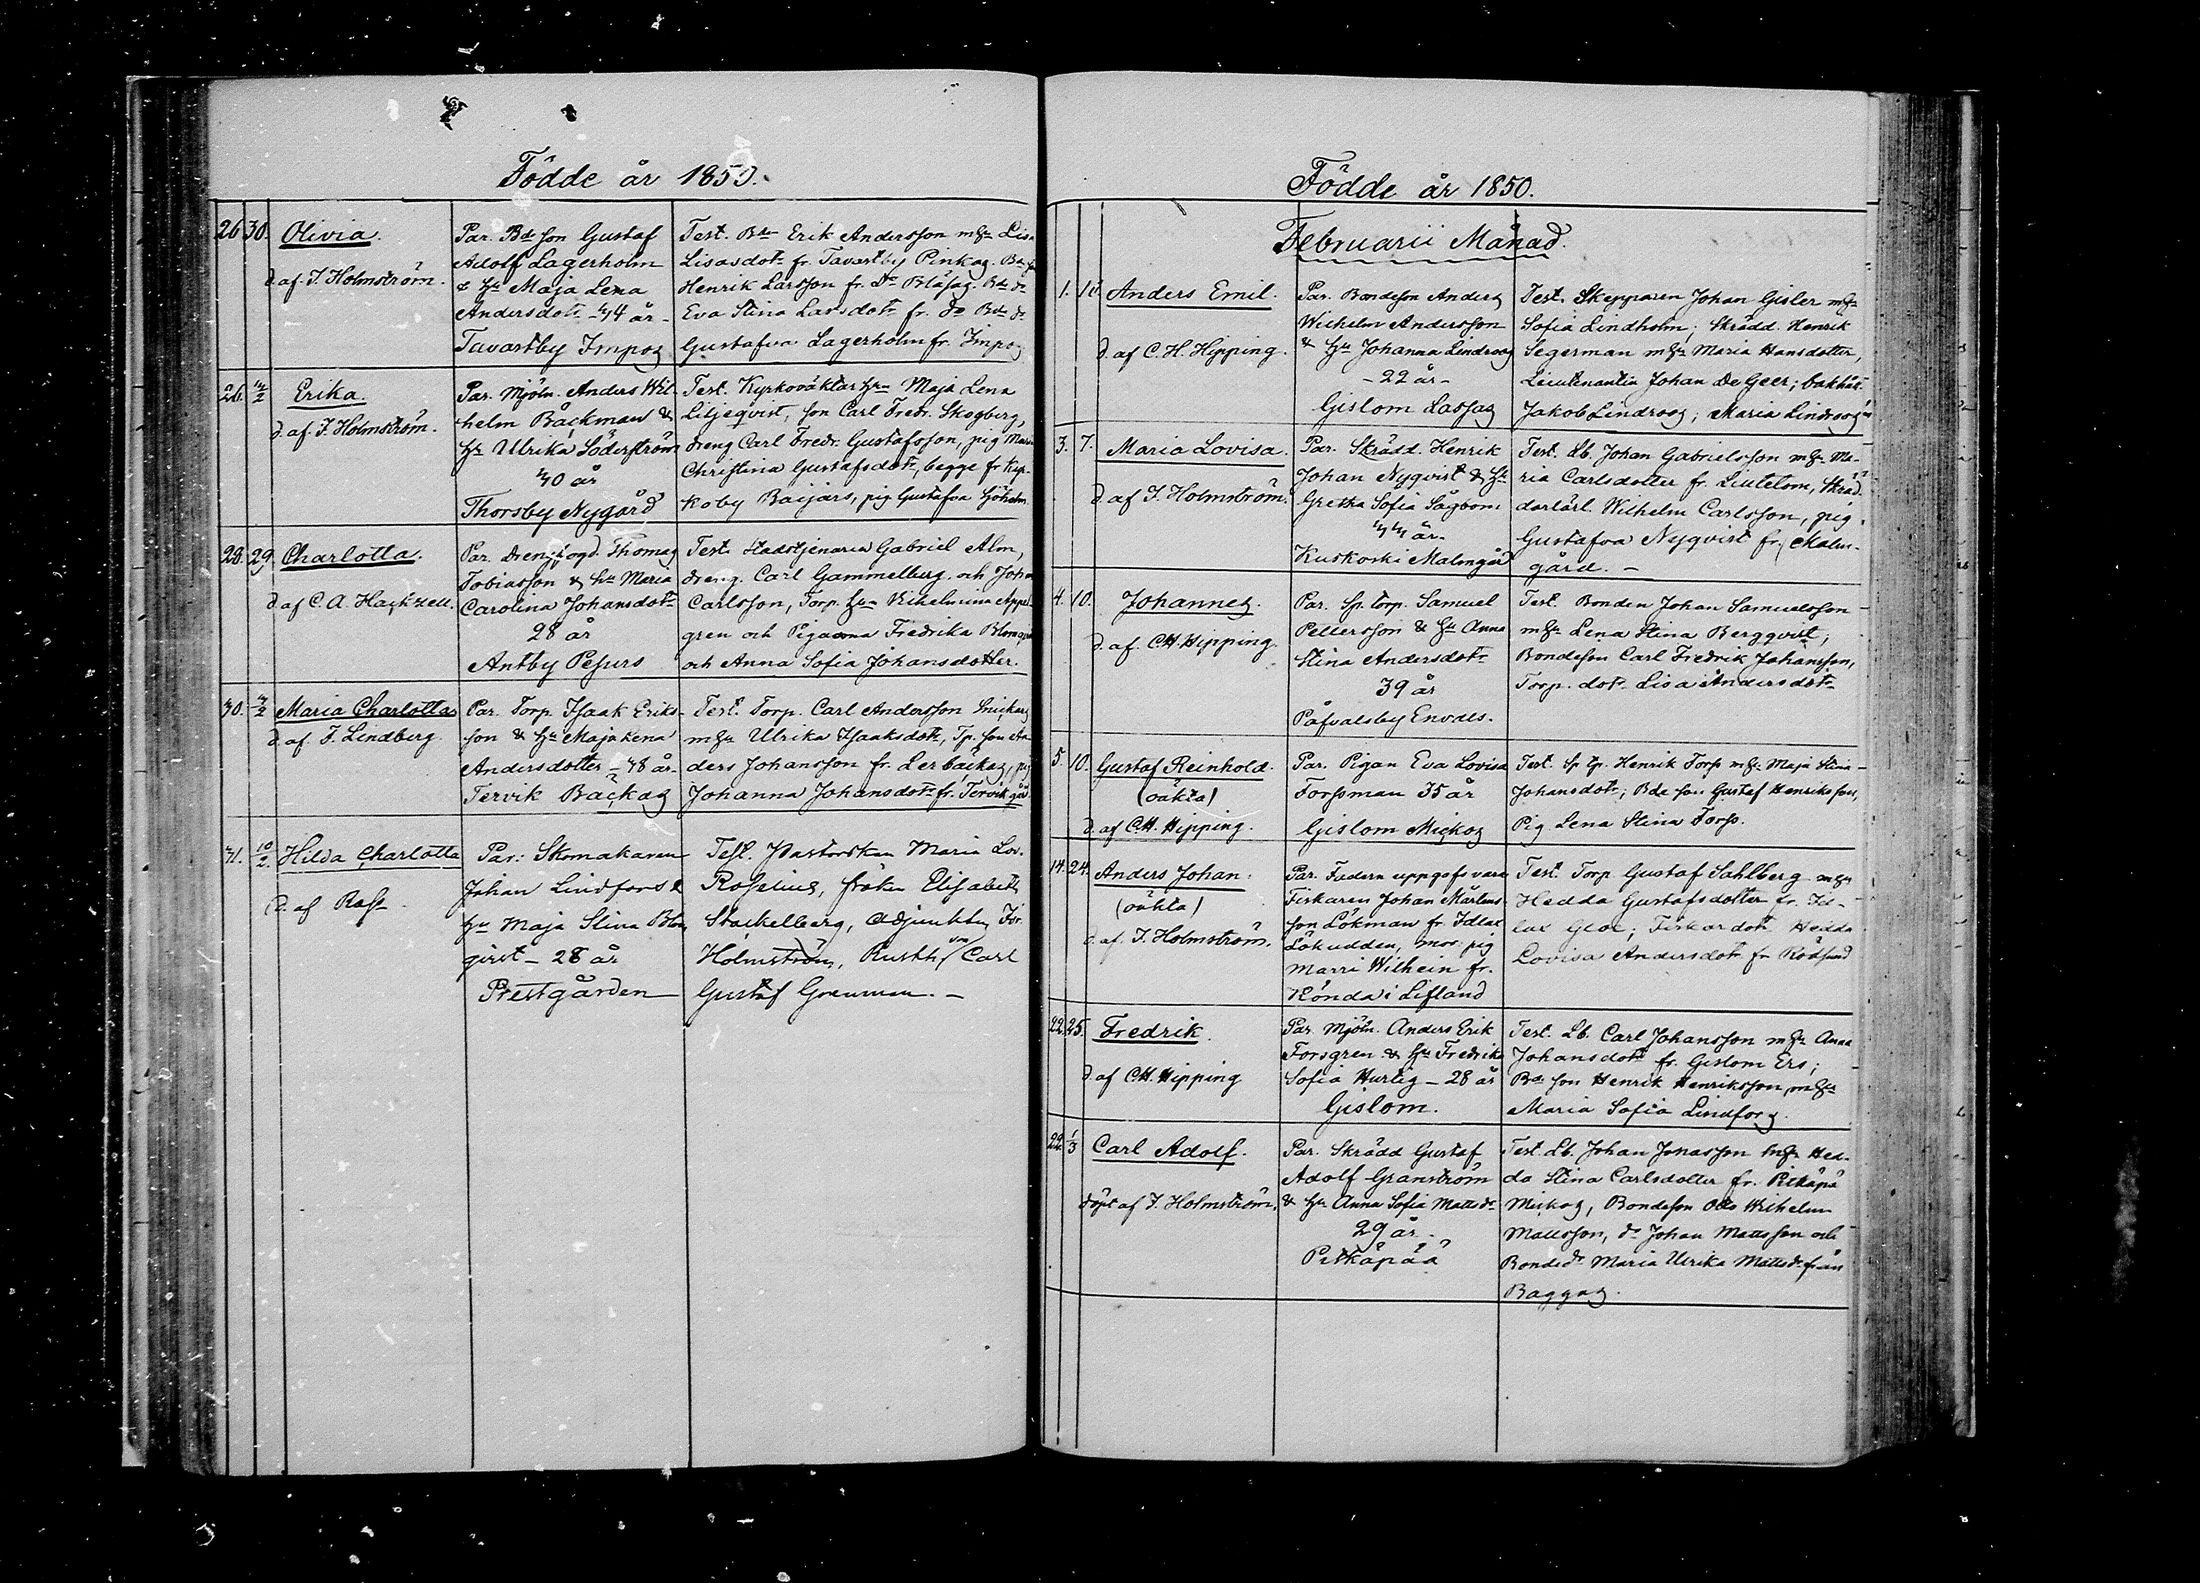 Födde år 1850.
26 30. Olivia.
d. af. F. Holmström.
Par. Bde son Gustaf
Adolf Lagerholm
& Hu Maja Lena
Andersdotr 44 år
Tavastby Impog
Test. Bdn Erik Andersson m hu Lisa
Lisasdotr fr. Tavastby Pinkas. Bde son
Henrik Larsson fr. Do Blåsas. Bde dr
Eva Stina Larsdotr fr. Do Bde dr
Gustafva Lagerholm fr. Impog
26. Erika.
d. af. F. Holmström.
Par. Mjöln. Anders Wil-
helm Bäckman &
Hu Ulrika Söderström
40 år
Thorsby Nygård
Test. Kyrkoväktar hun Maja Lena
Liljeqvist, son Carl Fredr. Skogberg,
dreng Carl Fredr. Gustafsson, pig Maria
Christina Gustafsdotr, begge fr Kep-
koby Baijars, pig Gustafva Sjöholm
28. 29. Charlotta.
d af C. A. Hackzell.
Par. Dreng, Logd. Thomas
Tobiasson & hu Maria
Carolina Johansdotr
28 år
Antby Pesurs
Test. Stadstjenaren Gabriel Alm,
dreng. Carl Gammelberg och Johan
Carlsson, Torp. hun Wilhelmina Appel-
gren och Pigorna Fredrika Blomqvist
och Anna Sofia Johansdotter.
30. Maria Charlotta
d. af. F. Lindberg
Par. Torp Isaak Eriks-
son & Hu Maja Lena
Andersdotter 48 år
Tervik Backas
Test. Torp. Carl Andersson Snickars
m hu Ulrika Isaaksdotr, Tp. son An-
ders Johansson fr. Lerbackas, pig
Johanna Johansdotr fr. Tervik gård
31. 10/2. Hilda Charlotta
d. af Ross
Par: Skomakaren
Johan Lindfors &
hu Maja Stina Blom
qvist - 28 år
Prestgården
Test. Pastorskan Maria Lov.
Roselius, fröken Elisabeth
Stackelberg, Adjunkten For.
Holmström, Rusth. son Carl
Gustaf Grenman.
Födde år 1850.
Februarii Månad.
1. Anders Emil.
d. af C. H. Hipping.
Par. Bondeson Anders
Wilhelm Andersson
& Hu Johanna Lindroos
- 22 år -
Gislom Lassas
Test. Skepparen Johan Gisler m hu
Sofia Lindholm; Skrädd. Henrik
Segerman m hu Maria Hansdotter,
Lieutenantin Johan De Geer; bakhåk.
Jakob Lindroos; Maria Lindroos
3. 7. Maria Lovisa.
d. af F. Holmström.
Par. Skrädd. Henrik
Johan Nyqvist & Hu
Gretha Sofia Sågbom
44 år
Kuskoski Malmgård
Test. Lb. Johan Gabrielsson m hu Ma-
ria Carlsdotter fr. Liutelom, Skräd-
darlärl. Wilhelm Carlsson, pig.
Gustafva Nyqvist fr. Malm-
gård. -
4. 10. Johannes.
d. af. C. H. Hipping.
Par. Sp. torp. Samuel
Pettersson & Hu Anna
Stina Andersdotr
39 år
Påfvalsby Envdes.
Test. Bonden Johan Samuelsson
m hu Lena Stina Bergqvist,
Bondeson Carl Fredrik Johansson,
Torp. dotr Lisa Andersdotr
5. 10. Gustaf Reinhold.
(oäkta)
d. af C. H. Hipping.
Par. Pigan Eva Lovisa
Forssman 35 år
Gislom Mickos
Test. Sp Tp. Henrik Forss m hu Maja Stina
Johansdotr; Bde son Gustaf Henriksson,
Pig Lena Stina Forss.
14. 24. Anders Johan.
(oäkta)
d. af. F. Holmström.
Par. Fadern uppgafs vara
Fiskaren Johan Mårtens-
son Lökman fr. Idlax
Lökudden, mor: pig
Marri Wilhein fr.
Könda i Lifland
Test. Torp Gustaf Sahlberg m hu
Hedda Gustafsdotter fr. Id-
lax Gloe; Fiskardotr Hedda
Lovisa Andersdotr fr Rödsund
22. 25. Fredrik.
d af C. H. Hipping
Par. Mjöln. Anders Erik
Forsgren & Hu Fredrika
Sofia Hurtig - 28 år
Gislom.
Test. Lb. Carl Johansson m hu Anna
Johansdotr fr. Gislom Ers;
Bde son Henrik Henriksson, m hu
Maria Sofia Lindfors.
22. 1/3 Carl Adolf.
döpt af F. Holmström.
Par. Skrädd Gustaf
Adolf Granström
& Hu Anna Sofia Mattsdr
29 år.
Pitkäpää
Test. Lb. Johan Jonasson m hu Hed-
da Stina Carlsdotter fr. Pitkäpä
Mickos, Bondeson Otto Wilhelm
Mattsson, do Johan Mattsson och
Bonded. Maria Ulrika Mattsdr från
Baggas.